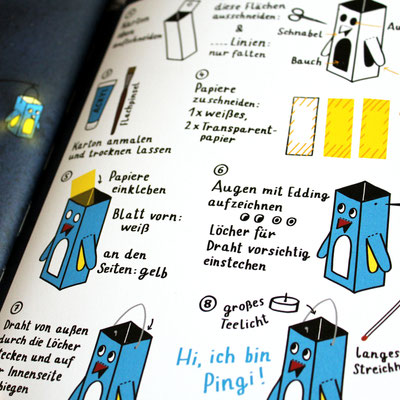 ①
Karton
oben
aufschneiden
diese Flächen
ausschneiden:
&
.... Linien:
nur falten
Schnabel
Au
Bauch
③
Flachpinsel
Karton anmalen
und trocknen lassen
④
Papiere
zuschneiden:
1x weißes,
2x Transparent-
papier
⑤
Papiere
einkleben
Blatt vorn:
weiß
an den
Seiten: gelb
⑥
Augen mit Edding
aufzeichnen
Löcher für
Draht vorsichtig
einstechen
⑦
Draht von außen
durch die Löcher
ecken und auf
r Innenseite
biegen
⑧ großes
Teelicht
Hi, ich bin
Pingi!
Langes
Streichh